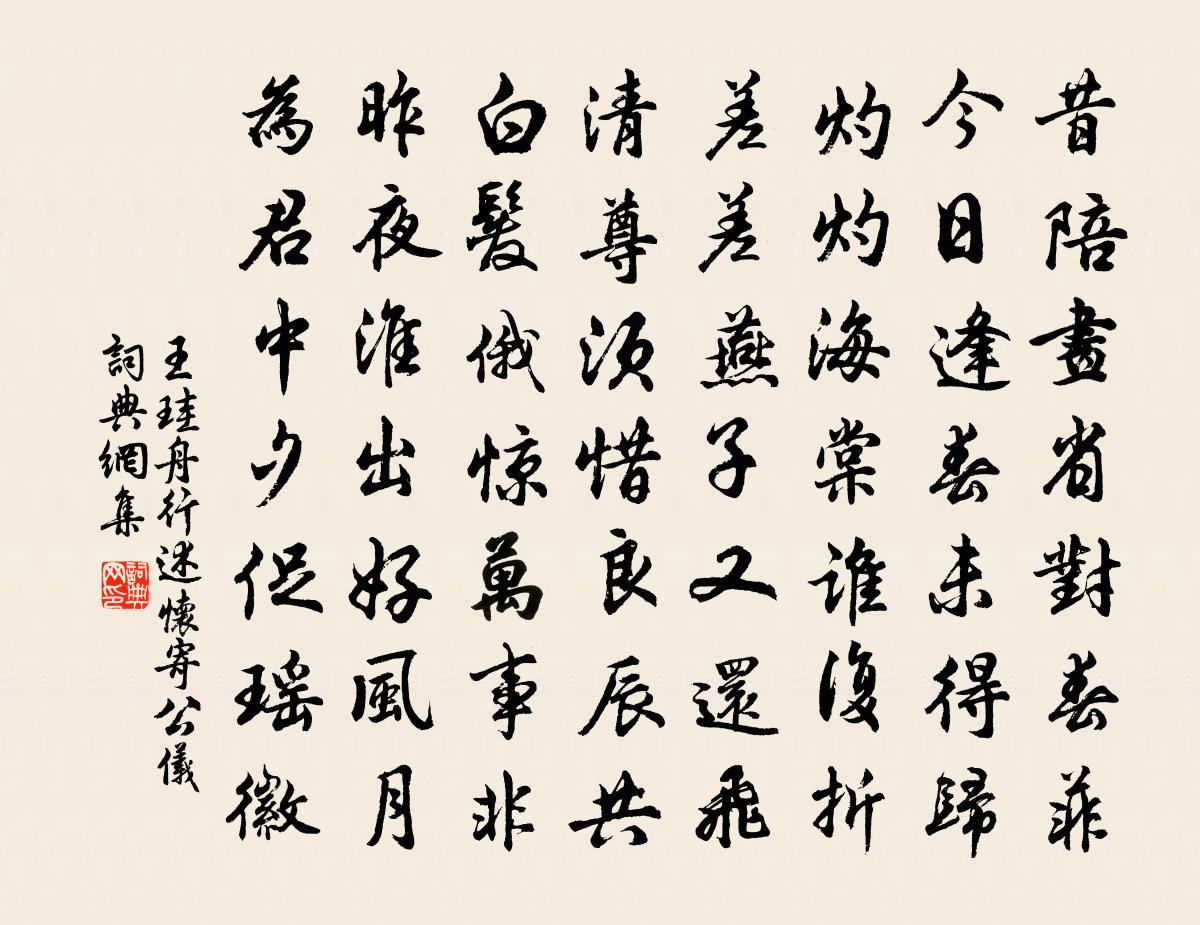 昔陪畫省對春菲
今日逢春未得歸
灼灼海棠誰復折
差差燕子又還飛
清尊須惜良辰共
白髮俄惊萬事非
昨夜淮出好風月
為君中夕促瑶徽
王珪舟行述懷寄公儀
詞典網集
詞典网印